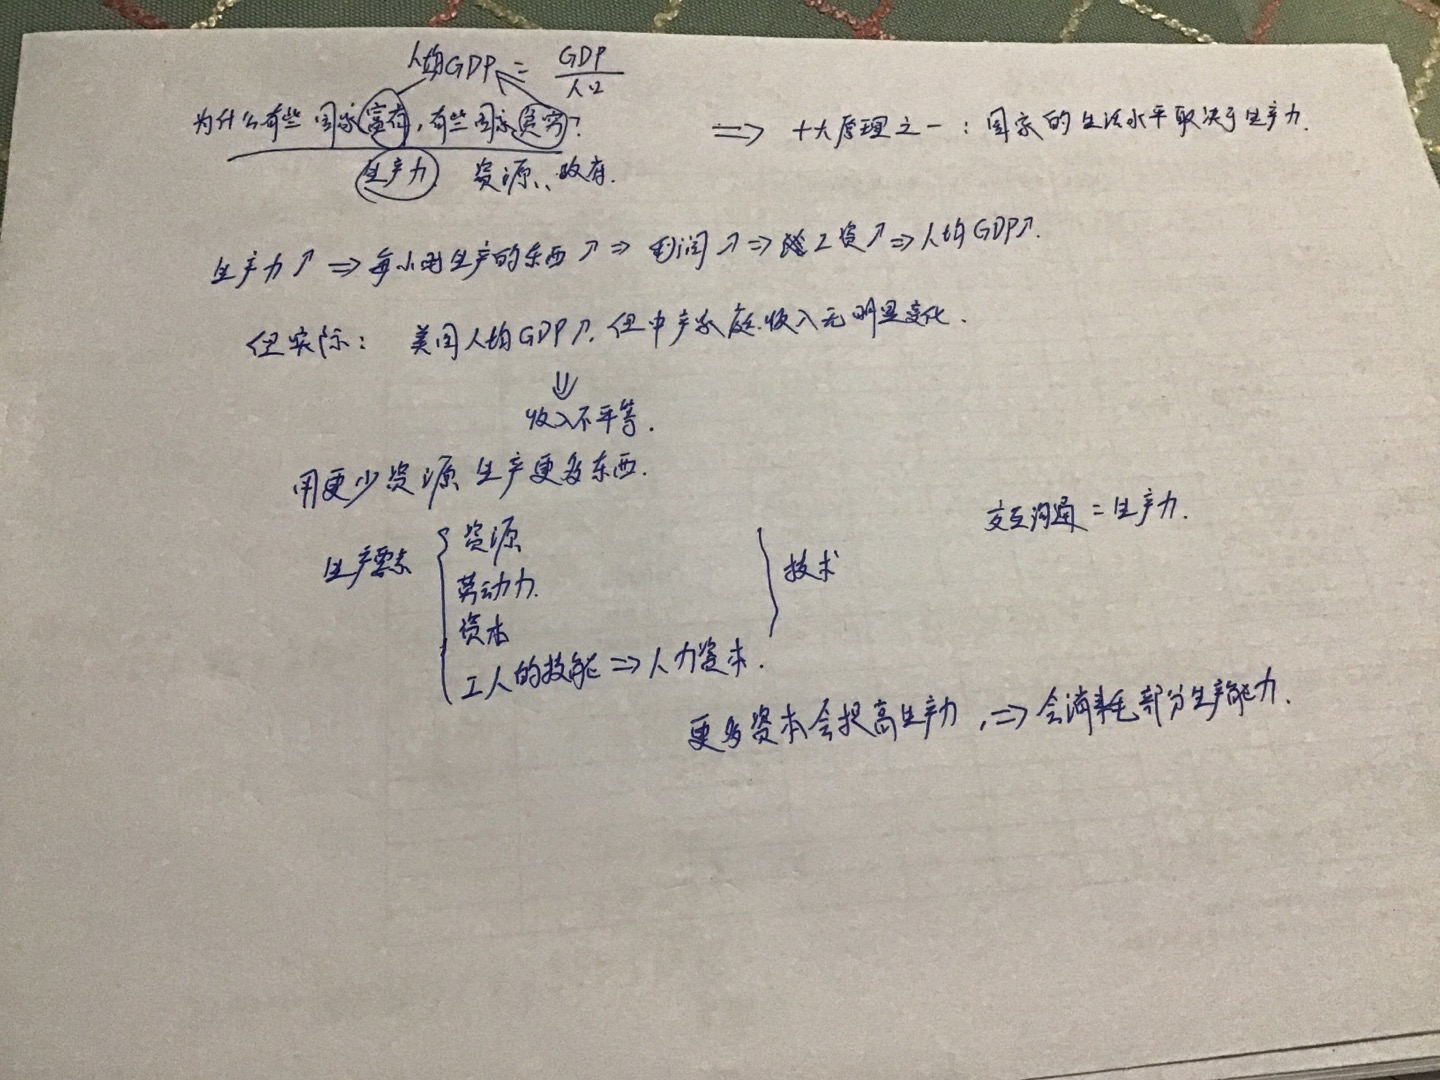 人均GDP = GDP / 人口
为什么有些国家富有,有些国家贫穷?
⇒ 十大原理之一:国家的生活水平取决于生产力.
生产力 资源、政府.
生产力↗ ⇒ 每小时生产的东西↗ ⇒ 利润↗ ⇒ 工资↗ ⇒ 人均GDP↗.
但实际: 美国人均GDP↗, 但中产家庭收入无明显变化.
⇓
收入不平等.
用更少资源生产更多东西.
交互沟通 = 生产力.
生产要素 { 资源
劳动力.
资本
工人的技能 ⇒ 人力资本.
} 技术
更多资本会提高生产力, ⇒ 会消耗部分生产能力.